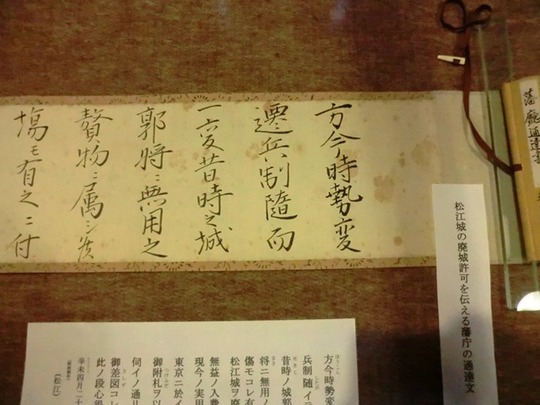 方今時勢変
遷兵制随而
一変昔時之城
郭将ニ無用之
贅物ニ属シ
塲モ有之ニ付
藩廰通達
松江城の廃城許可を伝える藩庁の通達文
方今時勢変
兵制随イ
昔時ノ城郭
将ニ無用ノ
傷モコレ有
松江城ヲ廃
無益ノ入費
現今ノ実用
東京ニ於イ
御附札ヲ以
伺イノ通リ
御差図コレ
此ノ段心得
辛未四月二十
〔松江